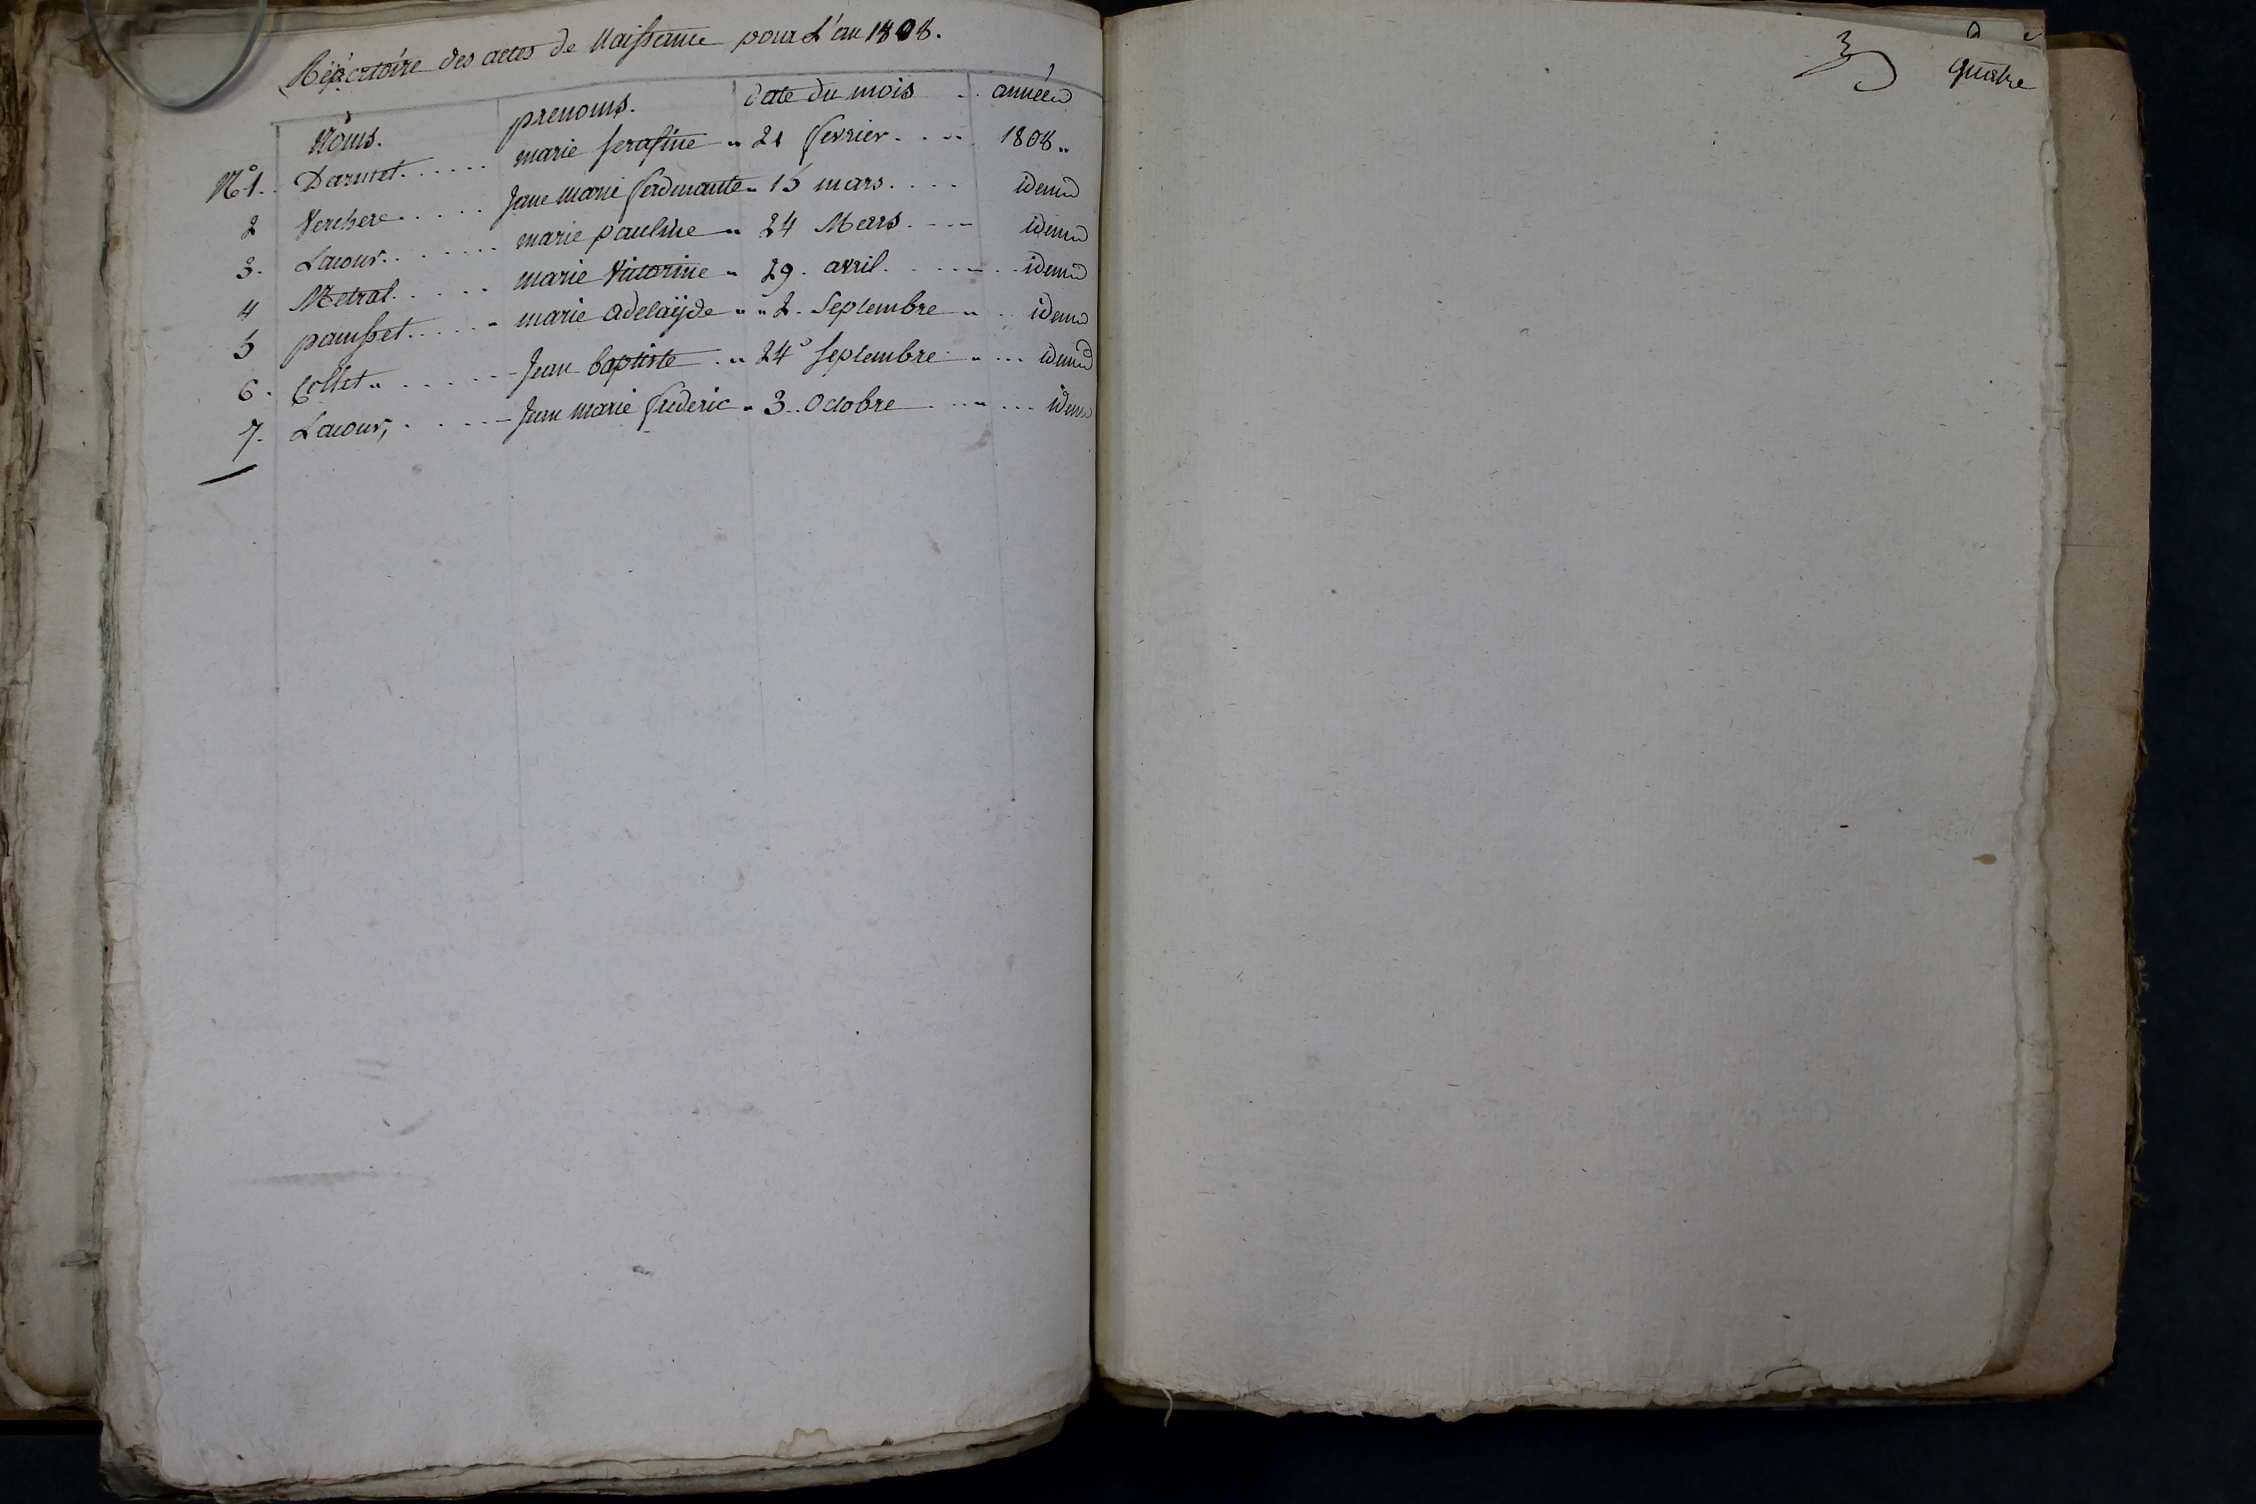 Répertoire des actes de Naissance pour L'an 1808.
Noms. prenoms. date du mois année
N° 1. Darmet marie serafine 21 fevrier 1808
2 Verchere Jane marie 15 mars idem
3. Lacour marie pauline 24 Mars idem
4 Metral marie Victorine 29. avril idem
5 pausset marie adelaÿde 2. Septembre idem
6. Collet Jean baptiste 24 septembre idem
7. Lacour, Jean marie frederic 3. Octobre idem
quatre